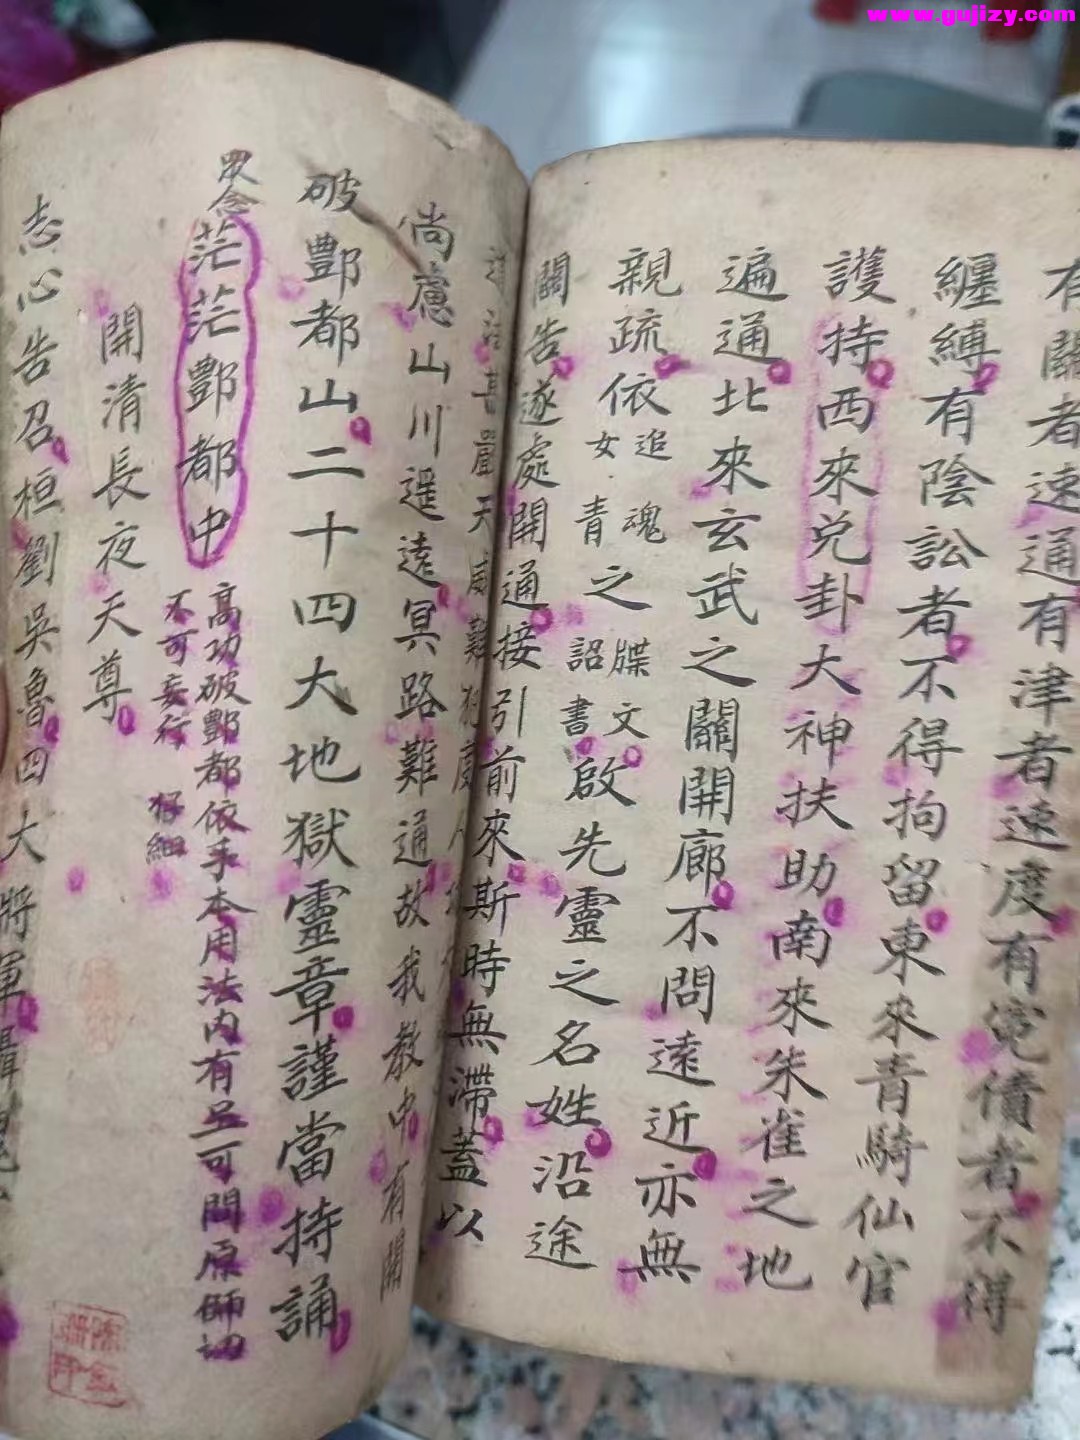 www.gujizy.com
有關者速通有津者速度有冤債者不得
纏縛有陰訟者不得拘留東來青騎仙官
護持西來兌卦大神扶助南來朱雀之地
遍通北來玄武之關開廊不問遠近亦無
親疏依追魂女青之牒文詔書啟先靈之名姓沿途
關告遂處開通接引前來斯時無滯蓋以
尚慮山川遥遠冥路難通故我教中有開
破酆都山二十四大地獄靈章謹當持誦
眾念茫茫酆都中
高功破酆都依手本用法内有
不可妄行 仔細
開清長夜天尊
志心告召桓劉吳魯四大將軍